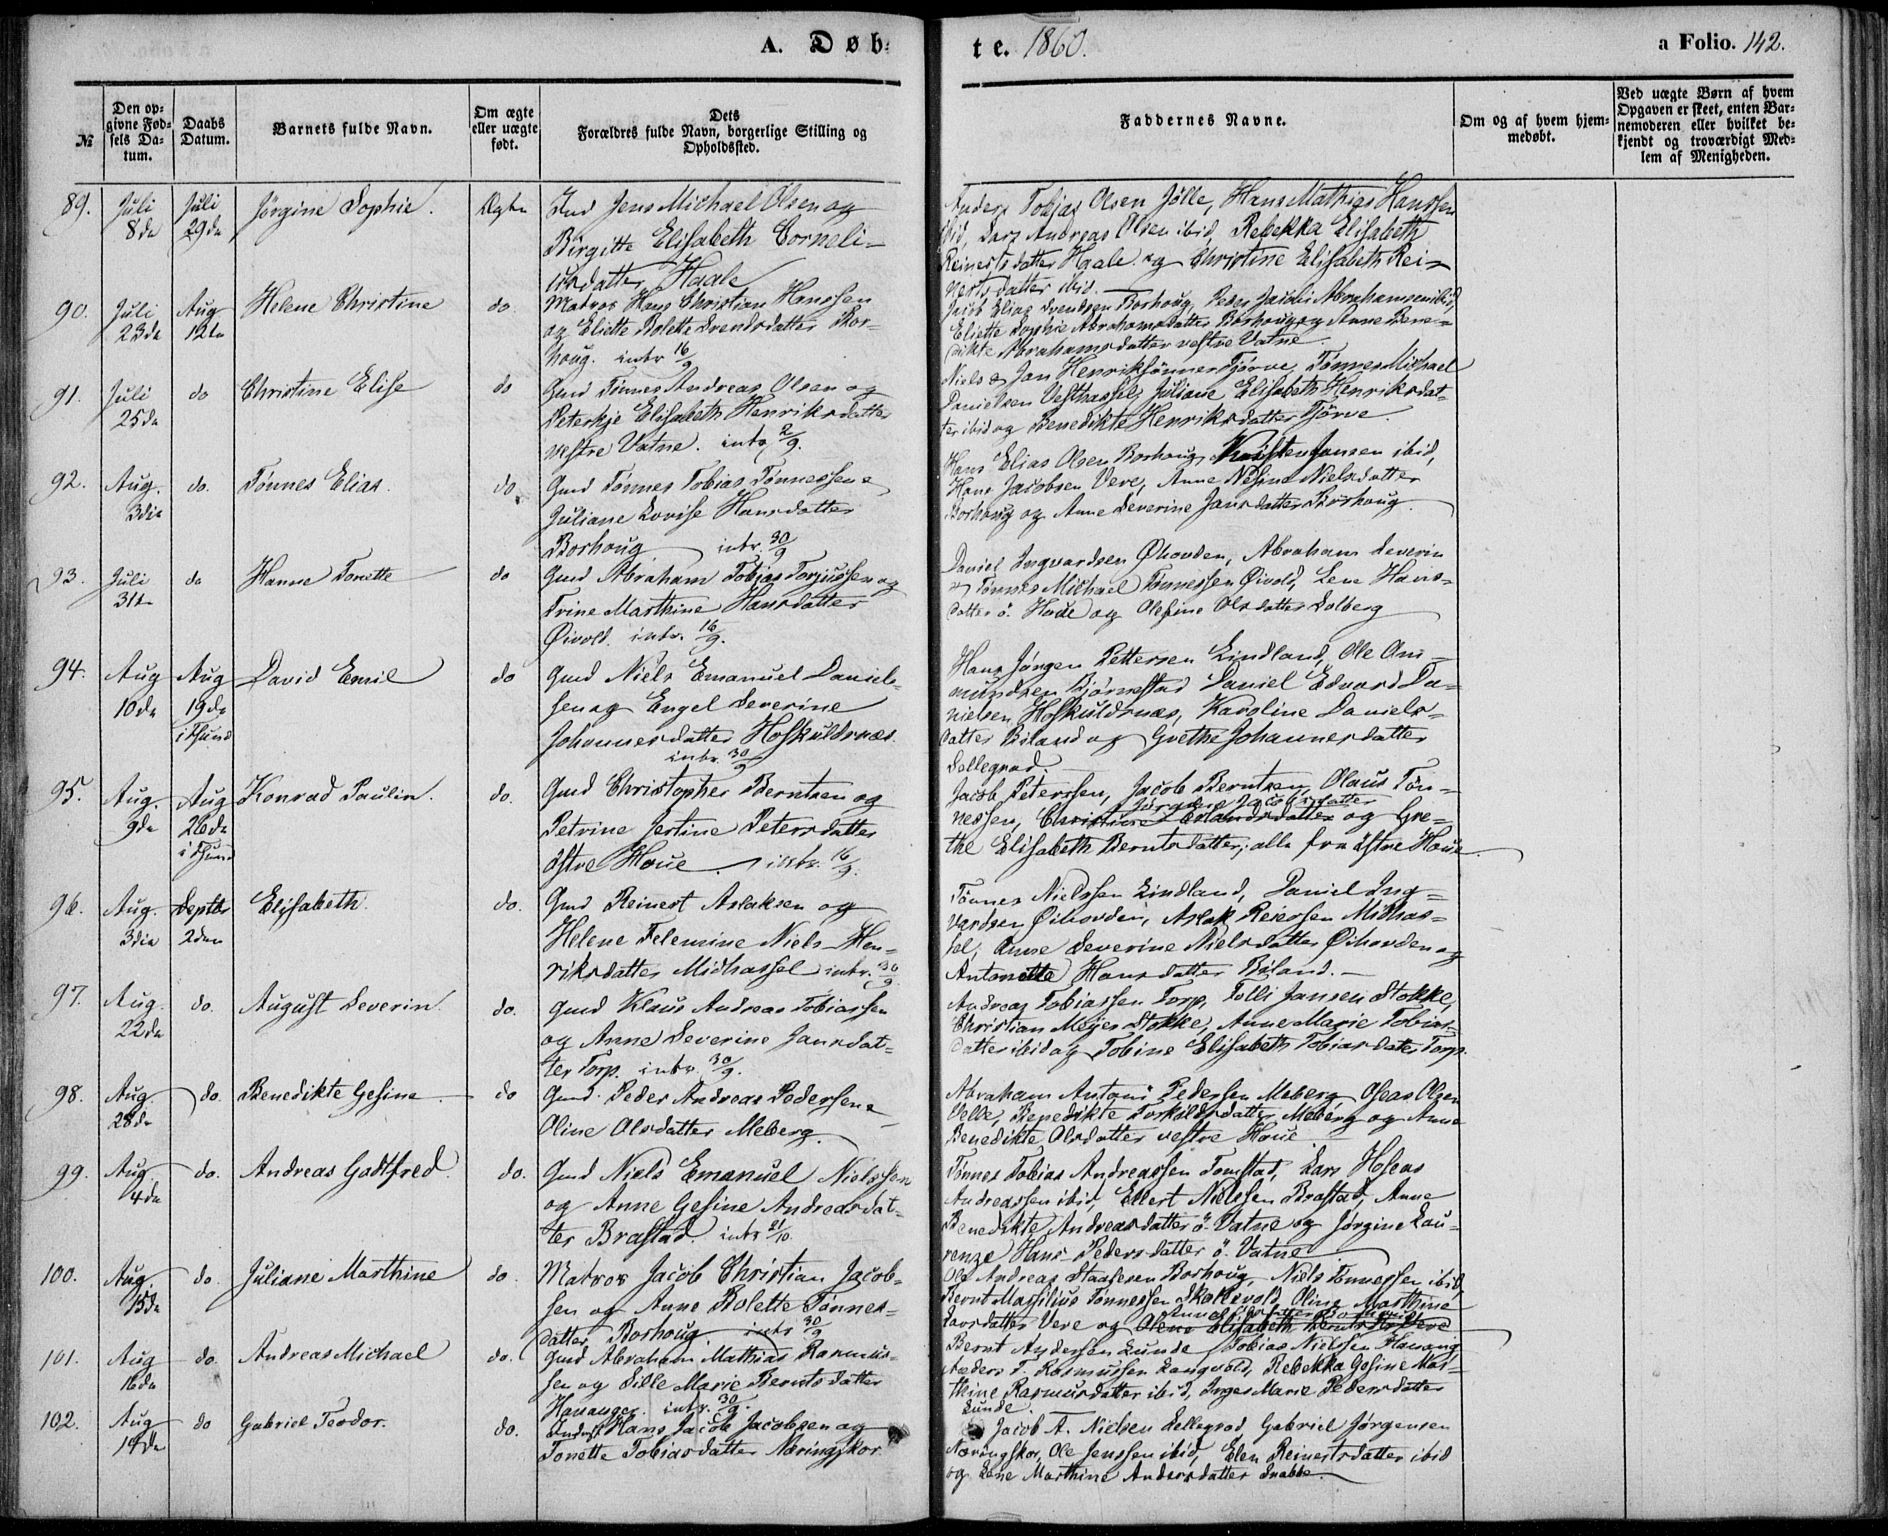 A. Døb-
te. 1860.
a Folio. 142.
№
Den op-
givne Fød-
sels Da-
tum.
Daabs
Datum.
Barnets fulde Navn.
Om ægte
eller uægte
født.
Dets
Forældres fulde Navn, borgerlige Stilling og
Opholdssted.
Faddernes Navne.
Om og af hvem hjem-
medøbt.
Ved uægte Børn af hvem
Opgaven er skeet, enten Bar-
nemoderen eller hvilket be-
kjendt og troværdigt Med-
lem af Menigheden.
89. Juli 8de Juli 29de Jørgine Sophie. Ægte
Jens Michael Olsen og
Birgitte Elisabeth Corneli-
usdatter Haale
Anders Tobias Olsen Jølle, Hans Mathias Hanssen
ibid, Lars Andreas Olsen ibid, Rebekka Elisabeth
Reinertsdatter Haale og Christine Elisabeth Rei-
nertsdatter ibid.
90. Juli 23de Aug 12te Helene Christine do.
Matros Hans Christian Hanssen
og Eliette Bolette Svendsdatter Bor-
houg. intr 16/9
Jacob Elias Svendsen Borhoug, Peder Jacobi Abrahamsen ibid,
Eliette Sophie Abrahamsdatter Borhoug og Anne Bene-
dikte Abrahamsdatter vestre Vatne.
91. Juli 25de do Christine Elise do
Gmd Tønnes Andreas Olsen og
Peterkje Elisabeth Henriksdatter
vestre Vatne. intr 2/9.
Niels & Jan Henriksønner Tjørve, Tønnes Michael
Danielsen Vesthassel, Juliane Elisabeth Henriksdat-
ter ibid og Benedikte Henriksdatter Tjørve.
92. Aug. 3die do. Tønnes Elias. do.
Gmd Tønnes Tobias Tønnessen &
Juliane Lovise Hansdatter
Borhoug intr. 30/9
Hans Elias Olsen Borhoug, Karsten Jansen ibid,
Hans Jacobsen Vere, Anne Nielsdatter
Borhoug og Anne Severine Jansdatter Borhoug.
93. Juli 31te do Hanne Tonette do
Gmd Abraham Tobias Torjussen og
Trine Marthine Hansdatter
Øivold. intr. 16/9.
Daniel Ingvardsen Øhovden, Abraham Severin
& Tønnes Michael Tønnessen Øivold, Lene Hans-
datter ö. Houe og Olefine Olsdatter Dolberg
94. Aug 10de Aug 19de i Fsund David Emil do
Gmd Niels Emanuel Daniel-
sen og Engel Severine
Johannesdatter Hoskuldsnæs.
intr. 30/9
Hans Jørgen Pettersen Lindland, Ole Om-
mundsen Bjørnestad, Daniel Edvard Da-
nielsen Hoskuldsnæs, Karoline Daniels-
datter Biland og Grethe Johannesdatter
Sellegrod.
95. Aug. 9de Aug 26de i Fsund Konrad Paulin. do.
Gmd Christopher Berntsen og
Petrine Jertine Petersdatter
østre Houe. intr. 16/9.
Jacob Peterssen, Jacob Berntsen, Olaus Tøn-
nessen, Jørgine Jacobsdatter og Gre-
the Elisabeth Berntsdatter; alle fra østre Houe.
96. Aug. 3die Septbr 2den Elisabeth. do.
Gmd Reinert Aslaksen og
Helene Telemine Niels Hen-
riksdatter Midhassel intr. 30/9.
Tønnes Nielssen Lindland, Daniel Ing-
vardsen Øihovden, Aslak Reiersen Midhas-
sel, Anne Severine Nielsdatter Øihovden og
Antonette Hansdatter Biland.
97. Aug. 22de do. August Severin. do.
Gmd Klaus Andreas Tobiassen
og Anne Severine Jansdat-
ter Torp. intr. 30/9.
Andreas Tobiassen Torp, Tolli Jansen Stokke,
Christian Meyer Stokke, Anne Marie Tobias-
datter ibid og Tobine Elisabeth Tobiasdatter Torp.
98. Aug. 28de do. Benedikte Gesine. do
Gmd. Peder Andreas Pedersen &
Oline Olsdatter Meberg.
Abraham Antoni Pedersen Meberg, Oseas Olsen
Velle, Benedikte Torkildsdatter Meberg og Anne
Benedikte Olsdatter vestre Houe
99. Aug. 4de do. Andreas Godtfred. do.
Gmd Niels Emanuel Nielssen
og Anne Gesine Andreasdat-
ter Brastad. intr 21/10.
Tønnes Tobias Andreassen Tomstad, Lars Hoseas
Andreassen ibid, Ellert Nielssen Brastad, Anne
Benedikte Andreasdatter ö. Vatne og Jørgine Lau-
renze Hans-Pedersdatter ö. Vatne
100. Aug. 15de do. Juliane Marthine do.
Matros Jacob Christian Jacob-
sen og Anne Bolette Tønnes-
datter Borhoug intr 30/9
Ole Andreas Staalesen Borhoug, Niels Tønnessen ibid,
Bernt Massilius Tønnessen Skollevold, Oline Marthine
Larsdatter Vere og Olene Elisabeth Vere
101. Aug 16de do. Andreas Michael do.
Gmd Abraham Mathias Rasmus-
sen og Sille Marie Berntsdatter
Hananger. intr. 30/9.
Bernt Andersen Lunde, Tobias Nielsen Hanang,
Anders T. Rasmussen Langvold, Rebekka Gesine Mar-
thine Rasmusdatter ibid, Inger Marie Pedersdatter
Lunde.
102. Aug 14de do Gabriel Teodor. do.
Hans Jacob Jacobsen og
Tonette Tobiasdatter Næringskor
Jacob A. Nielsen Sellegrod, Gabriel Jørgensen
Næringskor, Ole Jenssen ibid, Elen Reinertsdatter ibid
og Lene Marthine Andersdatter Snabbe.